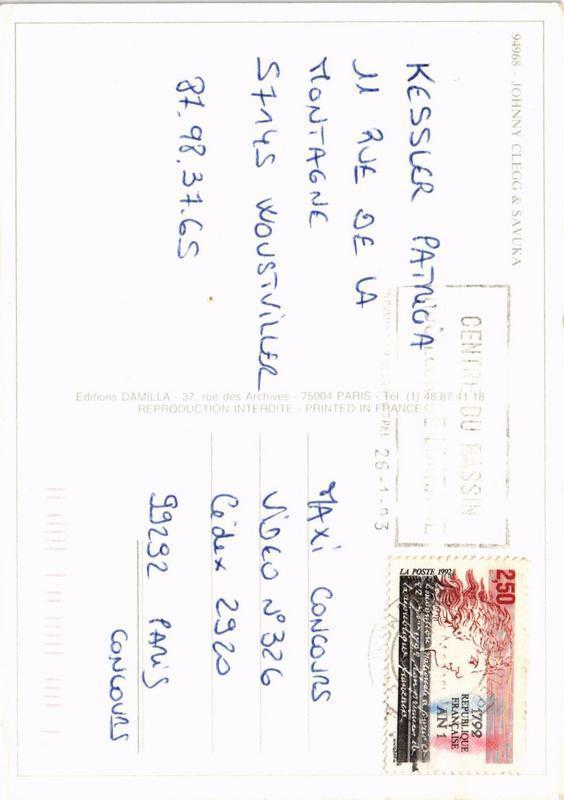 94968 - JOHNNY CLEGG & SAVUKA
KESSLER PATRICIA
11 RUE DE LA
MONTAGNE
57145 WOUSTVILLER
87.98.37.65
Editions DAMILLA - 37, rue des Archives - 75004 PARIS - Tél. (1) 48 87 41 18
REPRODUCTION INTERDITE - PRINTED IN FRANCE
CENTRE DU BASSIN
26-1-93
LA POSTE 1992
2,50
1792
REPUBLIQUE
FRANÇAISE
AN 1
MAXI CONCOURS
VIDEO N°326
Cédex 2920
99292 PARIS
CONCOURS